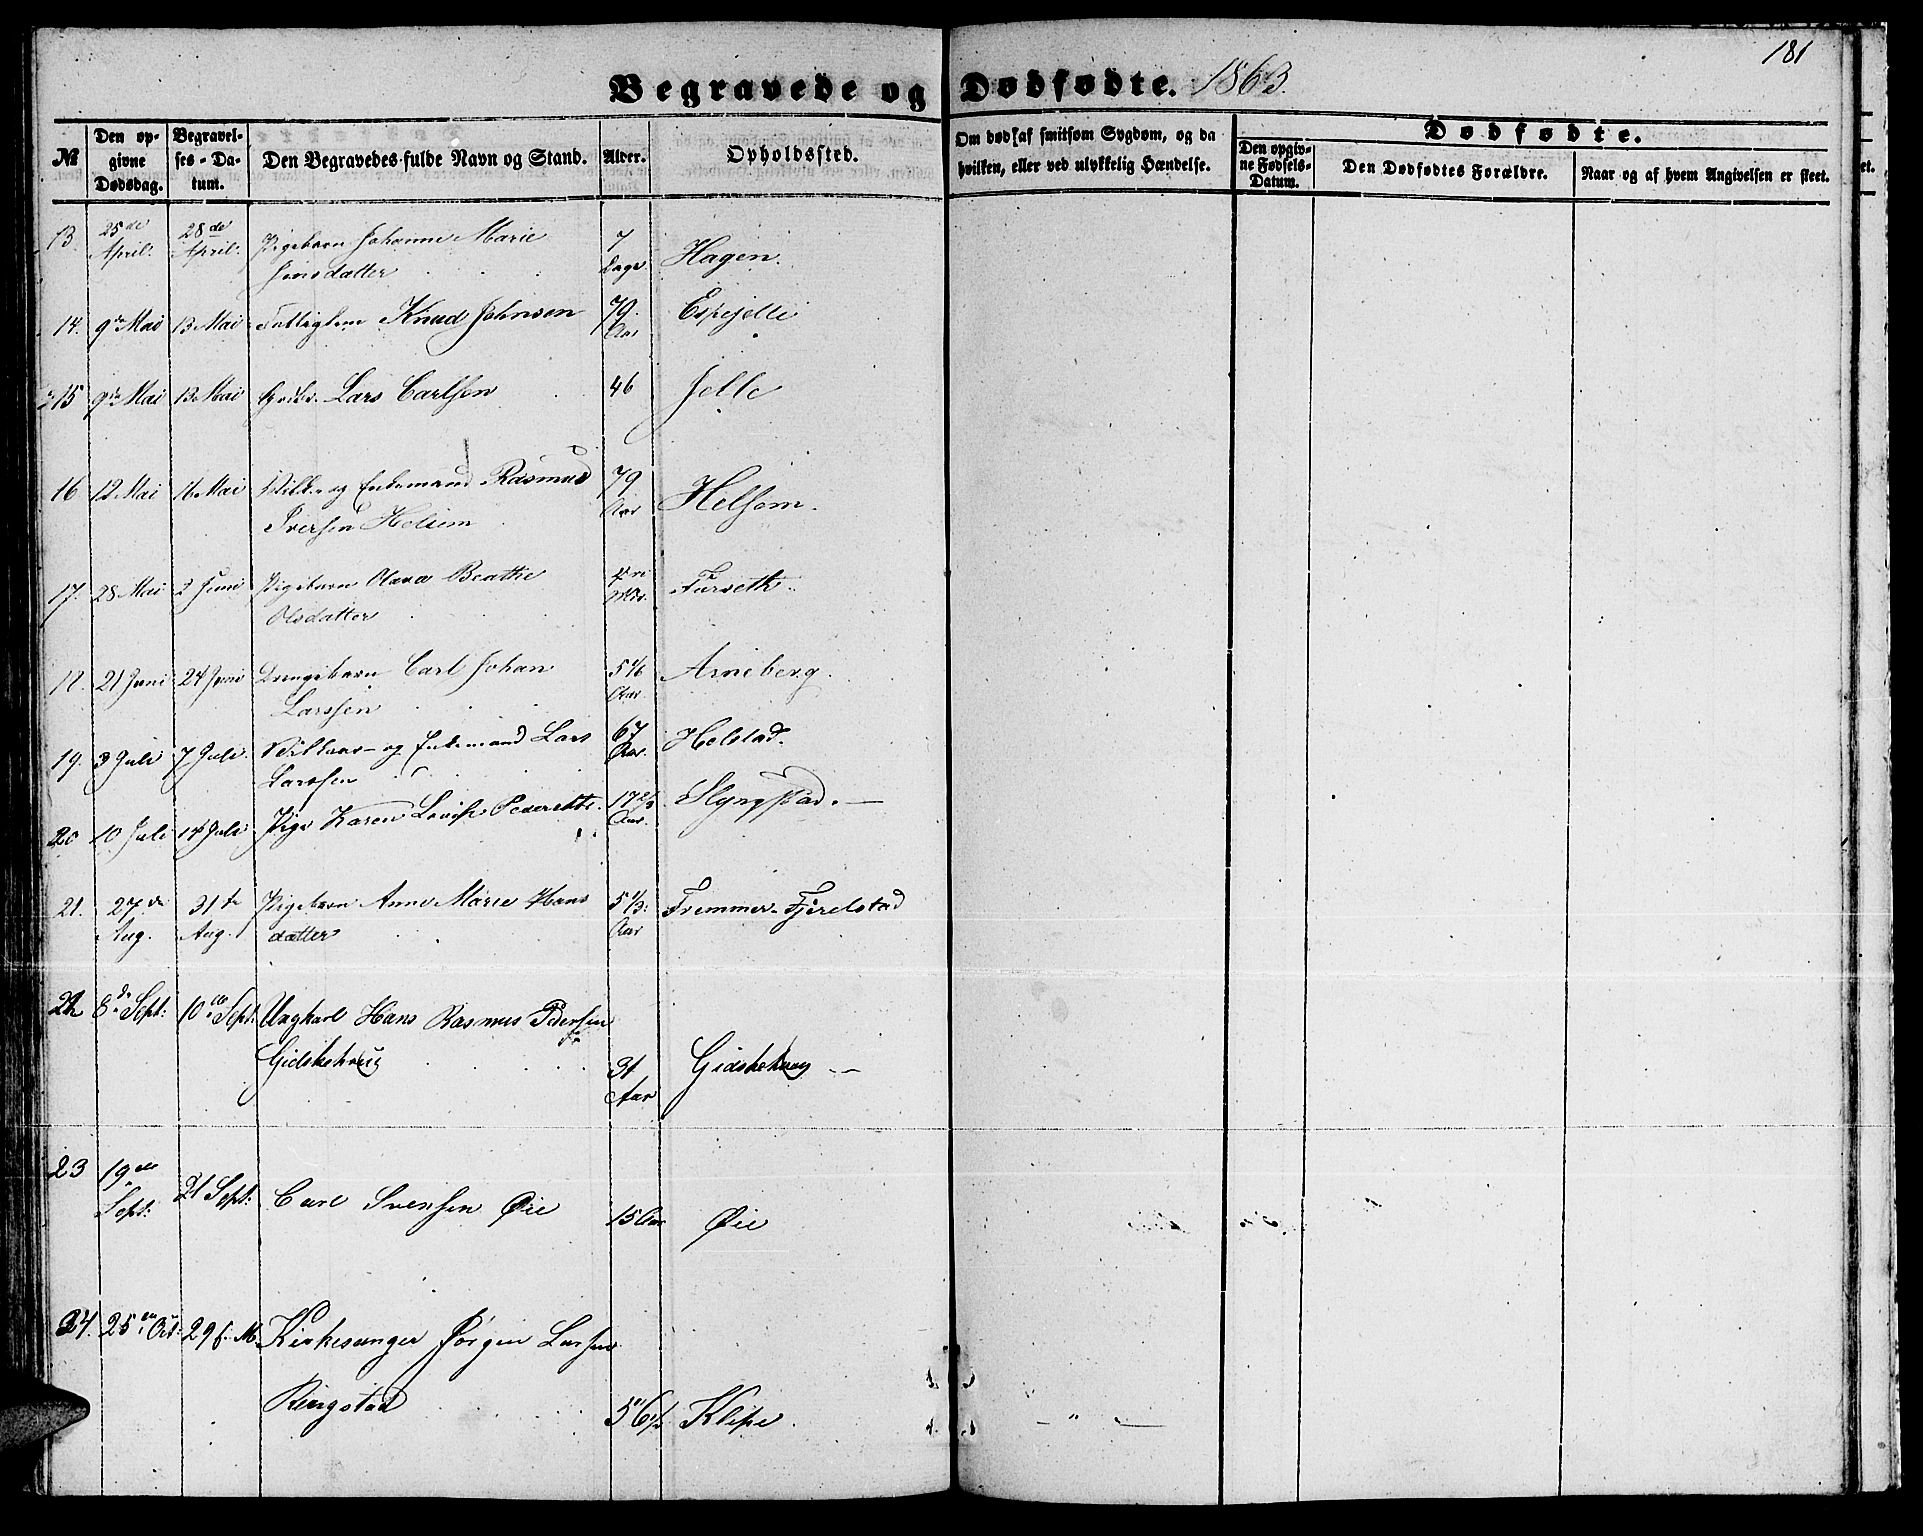 181
Begravede og Dødfødte. 1863.
№ Den opgivne Dødsdag. Begravelses-Datum. Den Begravedes fulde Navn og Stand. Alder. Opholdssted. Om død af smitsom Sygdom, og da hvilken, eller ved ulykkelig Hændelse. Dødfødte.
Den opgivne Fødsels-Datum. Den Dødfødtes Forældre. Naar og af hvem Angivelsen er skeet.
13. 25de April. 28de April. Pigebarn Johanne Marie 7 Dage. Hagen.
datter
14. 9de Mai 13 Mai Knud Johnsen 79. Aar Espejelle
15 9de Mai 13 Mai Lars Carlsen 46 Jelle
16 12 Mai 16 Mai og Enkemand Rasmus 79 Aar Helsem.
Iversen Helsem
17. 28 Mai 2 Juni Pigebarn Olava Beathe Furseth.
Olsdatter
18. 21 Juni 24 Juni Drengebarn Carl Johan 5 1/6 Aar Arneberg.
Larssen
19. 3 Juli 7 Juli. og Enkemand Lars 67 Aar. Helstad.
Larssen
20 10 Juli 14 Juli Pige Karen Lovise 17 2/3 Aar. Slyngstad. —
21. 27de Aug. 31te Aug. Pigebarn Anne Marie Hans 5 1/3. Aar Fremmer-Fjerelstad
datter
22 8de Sept: 10de Sept: Ungkarl Hans Rasmus Pedersen
Gidskehaug 31 Aar Gidskehaug —
23 19de Sept: 21 Sept: Carl Svensen Øie 15 Aar Øie
24. 25de Oct: 29 Kirkesanger Jørgen Larsen
Ringstad 56 1/2 Klipe. — " —